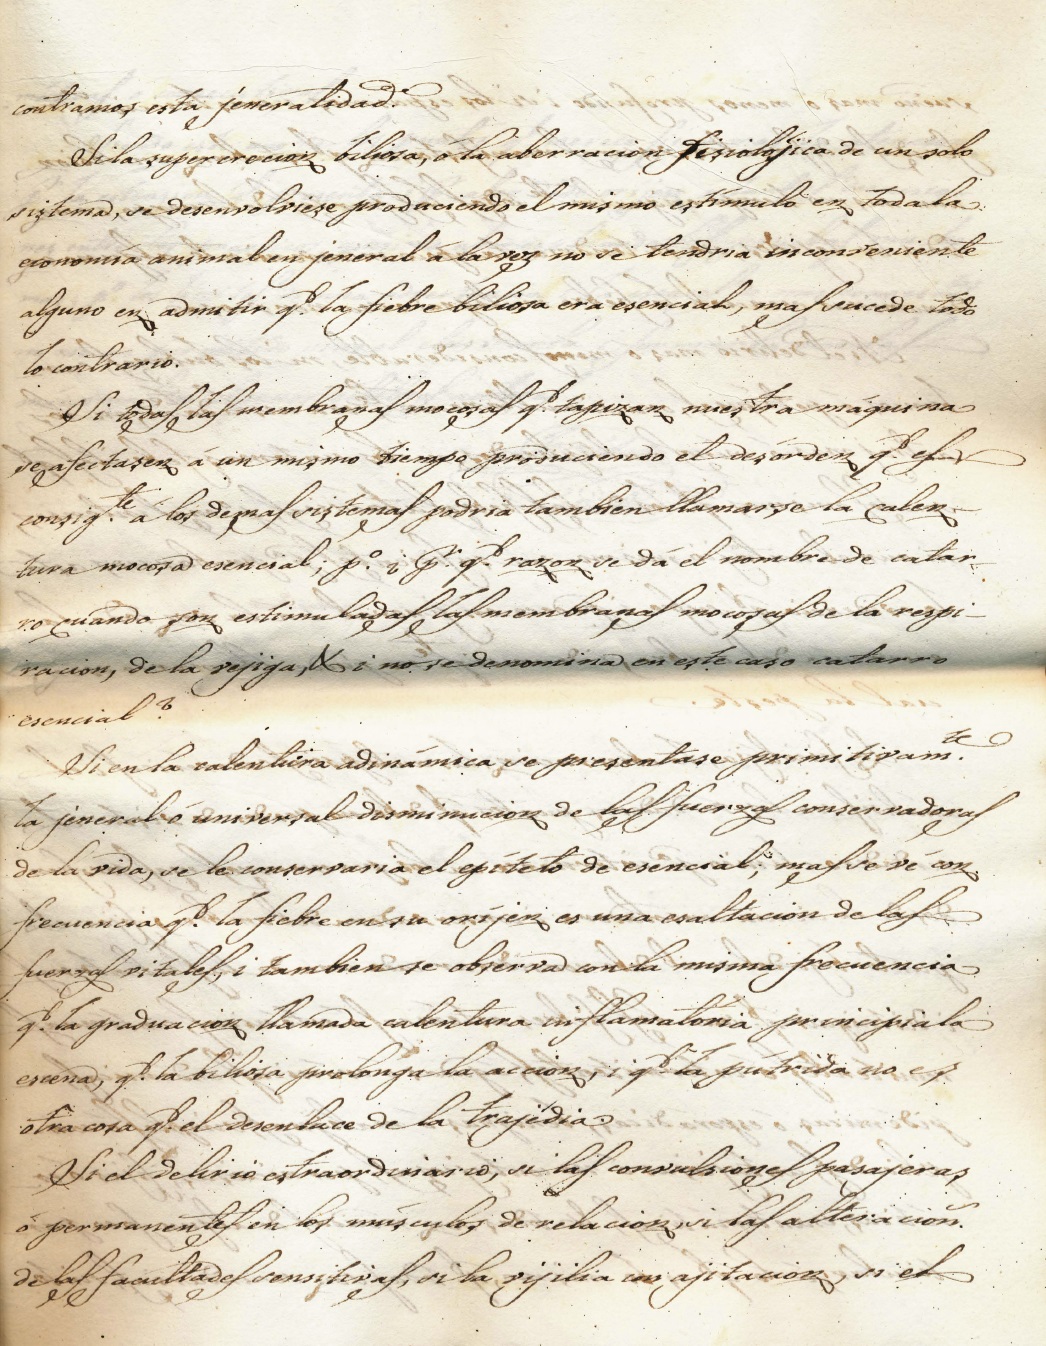 contramos esta jeneralidad.
Si la supercrecion biliosa, ó la aberracion fisiolójica de un solo
sistema, se desenvolviese produciendo el mismo estímulo en toda la
economía animal en jeneral á la vez no se tendria inconveniente
alguno en admitir q.e la fiebre biliosa era esencial, mas sucede todo
lo contrario.
Si todas las membranas mocosas q.e tapizan nuestra máquina
se afectasen á un mismo tiempo produciendo el desórden q.e es
consig.te á los demas sistemas podria tambien llamarse la calen-
tura mocosa esencial; p.o ¿ p.r q.e razon se dá el nombre de catar-
ro cuando son estimuladas las membranas mocosas de la respi-
racion, de la vejiga, & i no se denomina en este caso catarro
esencial?
Si en la calentura adinámica se presentase primitivam.te
la jeneral ó universal disminucion de las fuerzas conservadoras
de la vida, se le conservaria el epíteto de esencial; mas se vé con
frecuencia q.e la fiebre en su oríjen es una esaltacion de las
fuerzas vitales, i tambien se observa con la misma frecuencia
q.e la graduacion llamada calentura inflamatória principia la
escena, q.e la biliosa prolonga la accion, i q.e la pútrida no es
otra cosa q.e el desenlace de la trajédia.
Si el delirio estraordinario, si las convulsiones pasajeras,
ó permanentes en los músculos de relacion, si las alteracion.
de las facultades sensitivas, si la vijilia con ajitacion, si el